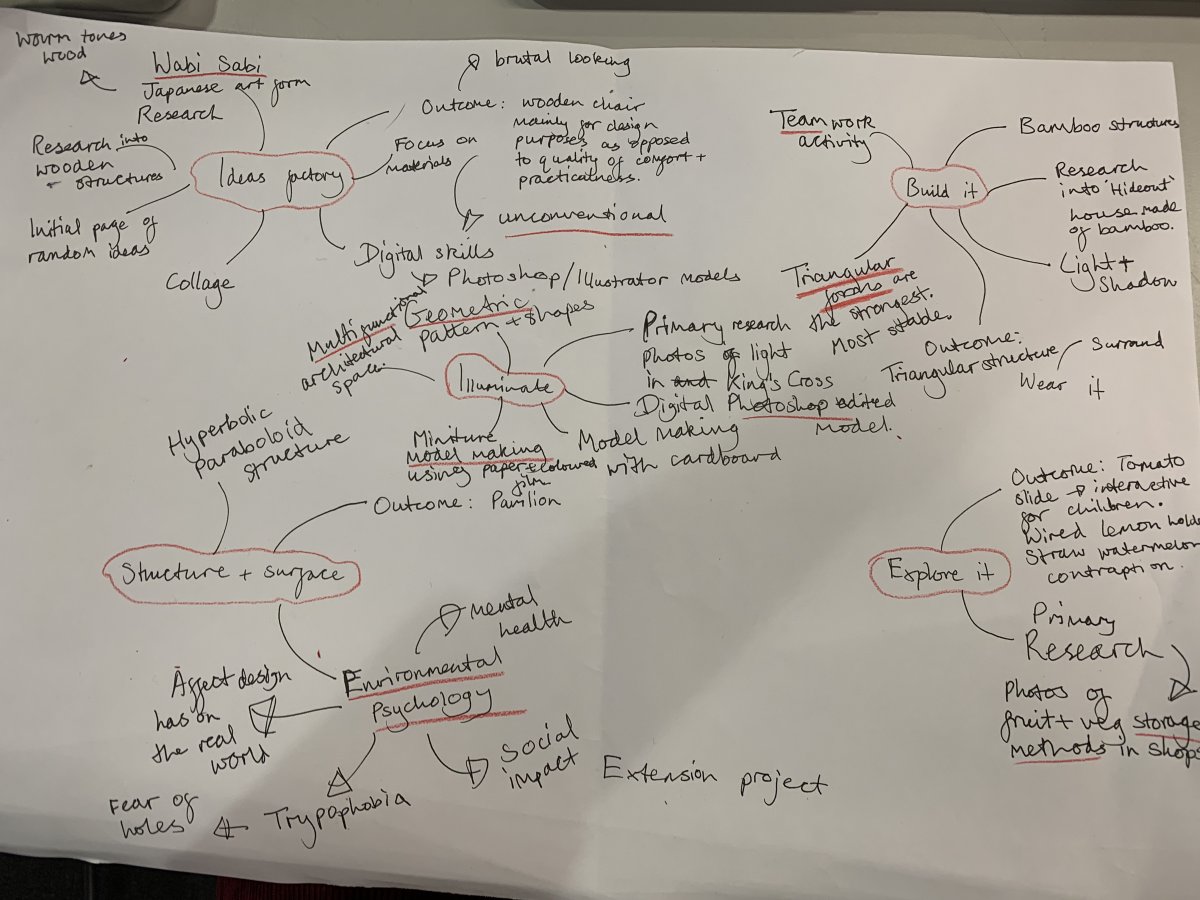 Warm tones
wood
Wabi Sabi
Japanese art form
Research
Research into
wooden
structures
Initial page of
random ideas
Collage
Ideas factory
brutal looking
Outcome: wooden chair
mainly for design
purposes as opposed
to quality of comfort +
practicalness.
Focus on
materials
unconventional
Digital skills
Photoshop/Illustrator models
Teamwork
activity
Build it
Bamboo structures
Research
into 'Hideout'
house made
of bamboo.
Light +
Shadow
Triangular
forms are
the strongest.
Most stable.
Outcome:
Triangular structure
Surround
Wear it
Multifunctional
architectural
space.
Geometric
pattern + shapes
Illuminate
Primary research
photos of light
in King's Cross
Digital Photoshop edited
Model.
Model making
with cardboard
Miniture
Model making
using paper + coloured
film
Hyperbolic
Paraboloid
structure
Outcome: Pavilion
Structure + surface
Environmental
Psychology
Mental
health
Affect design
has on
the real
world
Social
impact
Trypophobia
Fear of
holes
Extension project
Outcome: Tomato
slide → interactive
for children.
Wired lemon holde
Straw watermelon
contraption.
Explore it
Primary
Research
Photos of
fruit + veg storage
methods in shops